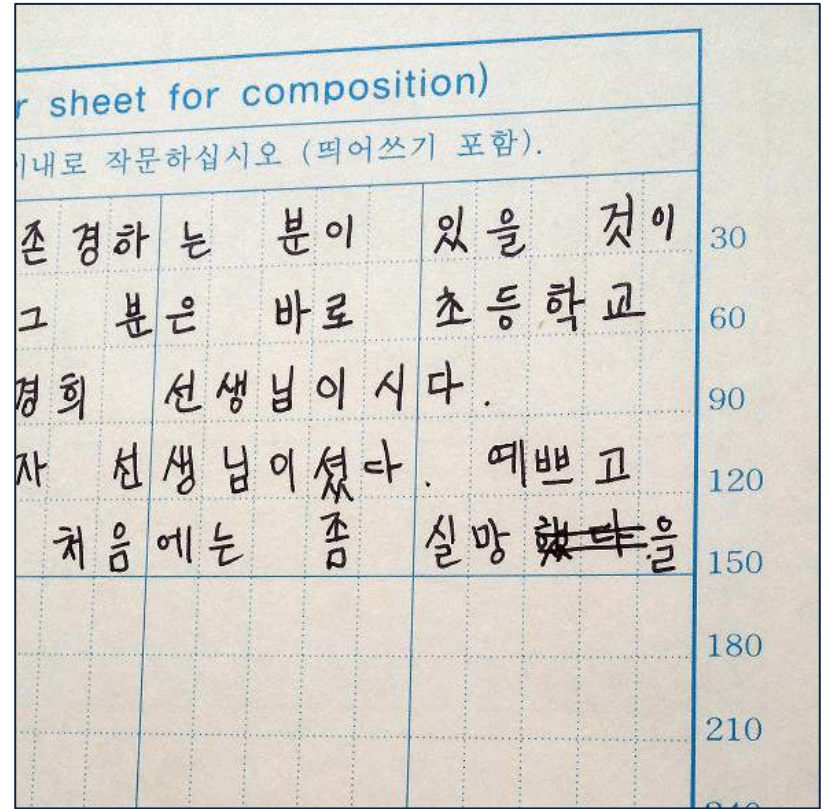 r sheet for composition)
이내로 작문하십시오 (띄어쓰기 포함).
존경하는 분이 있을 것이 30
그 분은 바로 초등학교 60
경희 선생님이시다. 90
자 선생님이셨다. 예쁘고 120
처음에는 좀 실망했다.을 150
180
210
240